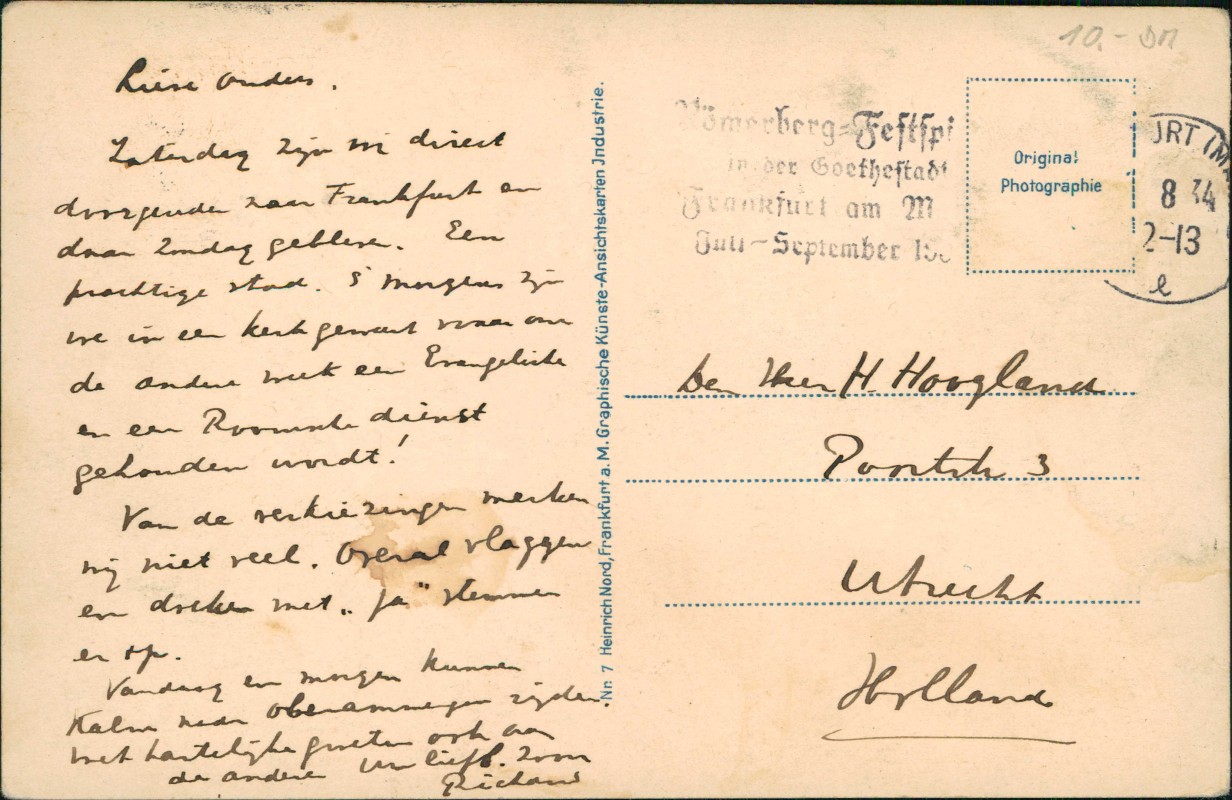 Lieve Ouders.
Zaterdag zijn wij direct
doorgereden naar Frankfurt en
daar Zondag gebleven. Een
prachtige stad. 's Morgens zijn
we in een kerk geweest waar om
de andere week een Evangelische
en een Roomsche dienst
gehouden wordt!
Van de verkiezingen merken
wij niet veel. Overal vlaggen
en doeken met „Ja” stemmen
er op.
Vandaag en morgen kunnen
kalm naar Oberammergau rijden.
Met hartelijke groeten ook aan
de anderen Uw liefh. Zoon
Richard
Nr. 7 Heinrich Nord, Frankfurt a. M. Graphische Künste-Ansichtskarten Jndustrie.
10.- DM
Römerberg-Festspi
in der Goethestadt
Frankfurt am M
Juli-September 19
Original
Photographie
URT (MA
8 34
2-13
e
Den Heer H. Hoogland
Poortstr 3
Utrecht
Holland